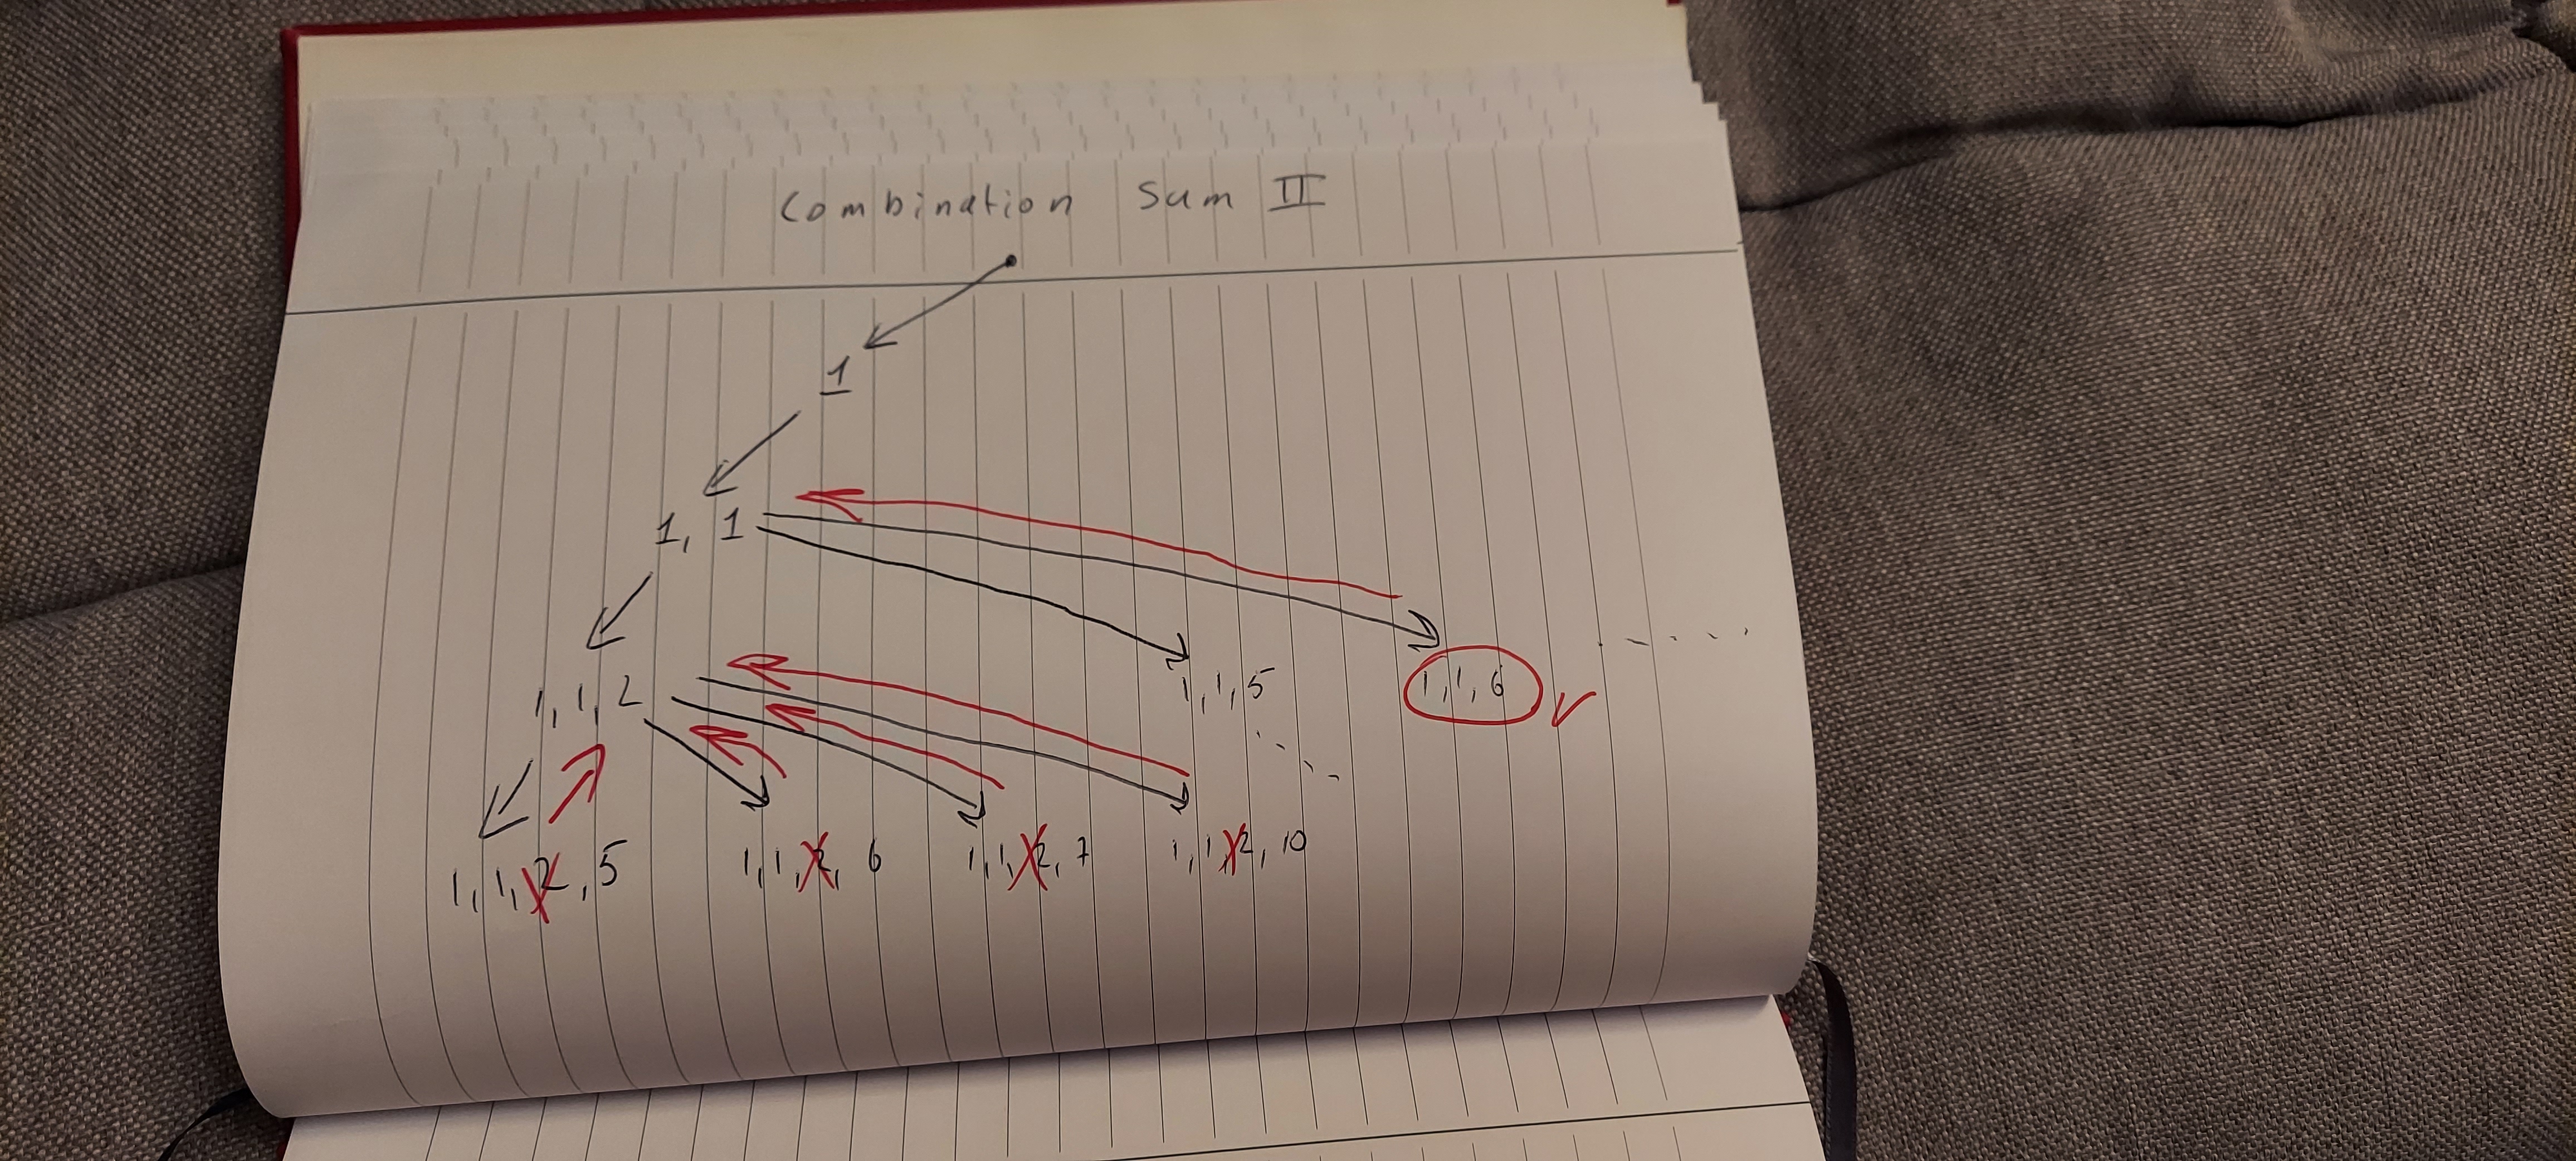 Combination Sum II
1
1, 1
1, 1, 2
1, 1, 5
1, 1, 6
1, 1, 2, 5
1, 1, 2, 6
1, 1, 2, 7
1, 1, 2, 10